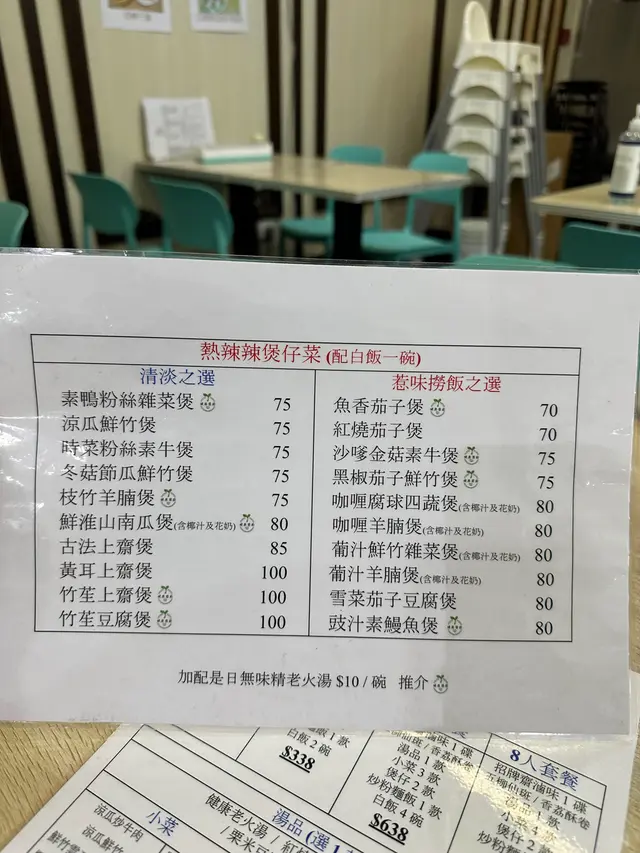 熱辣辣煲仔菜 (配白飯一碗)
清淡之選
素鴨粉絲雜菜煲 75
涼瓜鮮竹煲 75
時菜粉絲素牛煲 75
冬菇節瓜鮮竹煲 75
枝竹羊腩煲 75
鮮淮山南瓜煲(含椰汁及花奶) 80
古法上齋煲 85
黃耳上齋煲 100
竹笙上齋煲 100
竹笙豆腐煲 100
惹味撈飯之選
魚香茄子煲 70
紅燒茄子煲 70
沙嗲金菇素牛煲 75
黑椒茄子鮮竹煲 75
咖喱腐球四蔬煲(含椰汁及花奶) 80
咖喱羊腩煲(含椰汁及花奶) 80
葡汁鮮竹雜菜煲(含椰汁及花奶) 80
葡汁羊腩煲(含椰汁及花奶) 80
雪菜茄子豆腐煲 80
豉汁素鰻魚煲 80
加配是日無味精老火湯 $10 / 碗 推介
炒粉麵飯 1 款
白飯 2 碗
$338
湯品 1 款
小菜 3 款
煲仔 2 款
炒粉麵飯 1 款
白飯 4 碗
$638
8人套餐
招牌齋滷味 1 碟
湯品 1 款
小菜 4 款
煲仔 2 款
炒粉麵飯
小菜
涼瓜炒牛肉
湯品 (選 1
健康老火湯 / 紅
/ 粟米